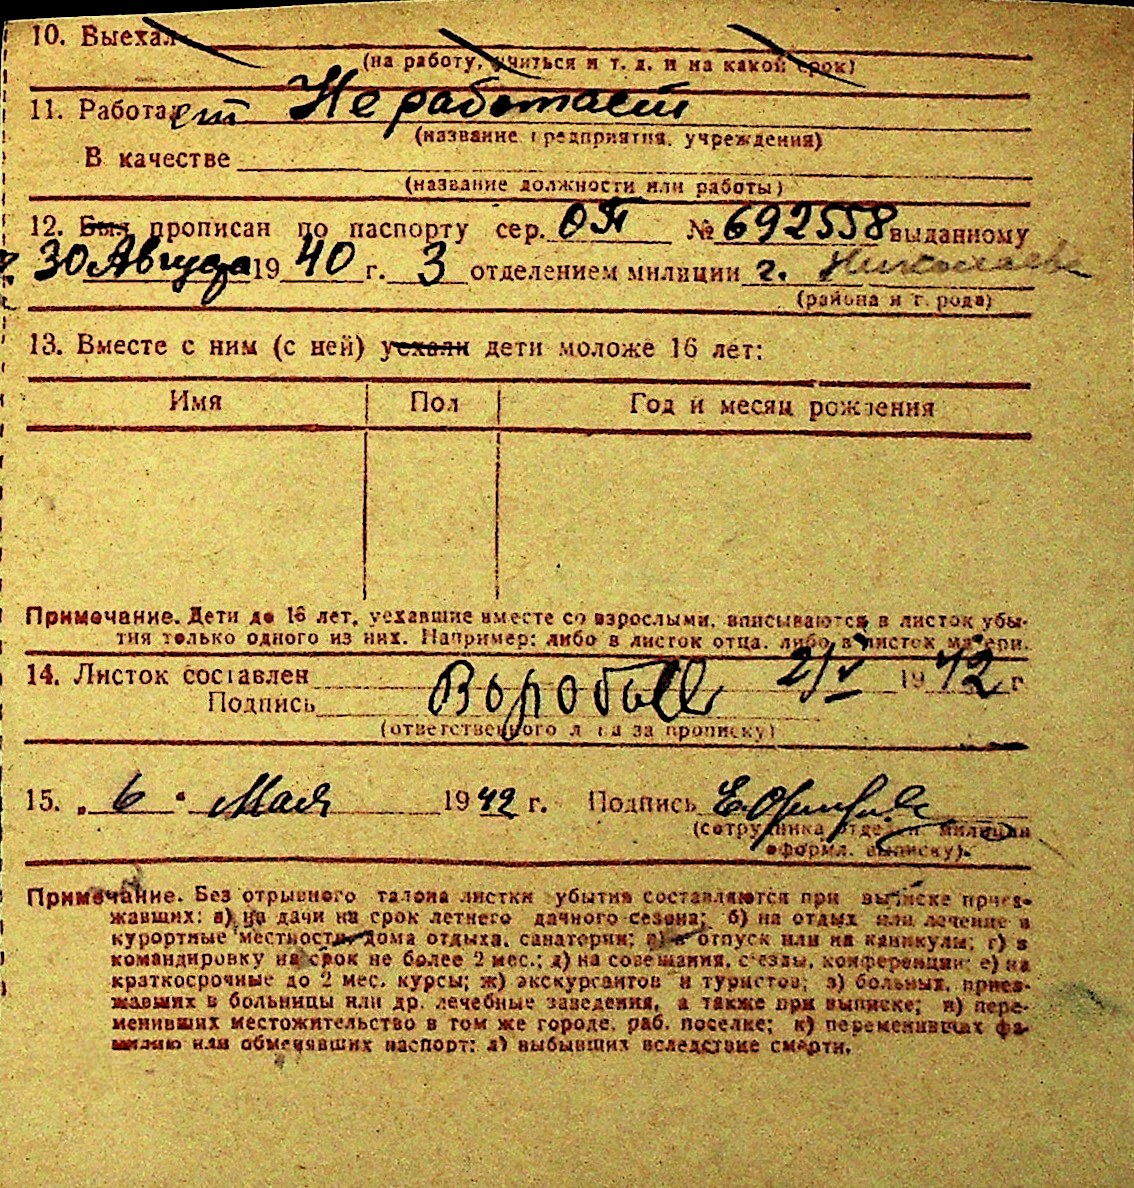 10. Выехал
(на работу, учиться и т. д. и на какой срок)
11. Работает Не работает
(название предприятия, учреждения)
В качестве
(название должности или работы)
12. Был прописан по паспорту сер. ОП № 692558 выданному
30 Августа 1940 г. 3 отделением милиции г. Николаева
(района и города)
13. Вместе с ним (с ней) уехали дети моложе 16 лет:
Имя Пол Год и месяц рождения
Примечание. Дети до 16 лет, уехавшие вместе со взрослыми, вписываются в листок убы-
тия только одного из них. Например: либо в листок отца, либо в листок матери.
14. Листок составлен 2/V 1942 г.
Подпись
(ответственного лица за прописку)
15. „6“ Мая 1942 г. Подпись
(сотрудника отдел-я милиции
оформл. выписку).
Примечание. Без отрывного талона листки убытия составляются при выписке приез-
жавших: а) на дачи на срок летнего дачного сезона; б) на отдых или лечение в
курортные местности, дома отдыха, санатории; в) в отпуск или на каникулы; г) в
командировку на срок не более 2 мес.; д) на совещания, съезды, конференции; е) на
краткосрочные до 2 мес. курсы; ж) экскурсантов и туристов; з) больных, приез-
жавших в больницы или др. лечебные заведения, а также при выписке; и) пере-
менивших местожительство в том же городе, раб. поселке; к) переменивших фа-
милию или обменявших паспорт; л) выбывших вследствие смерти.